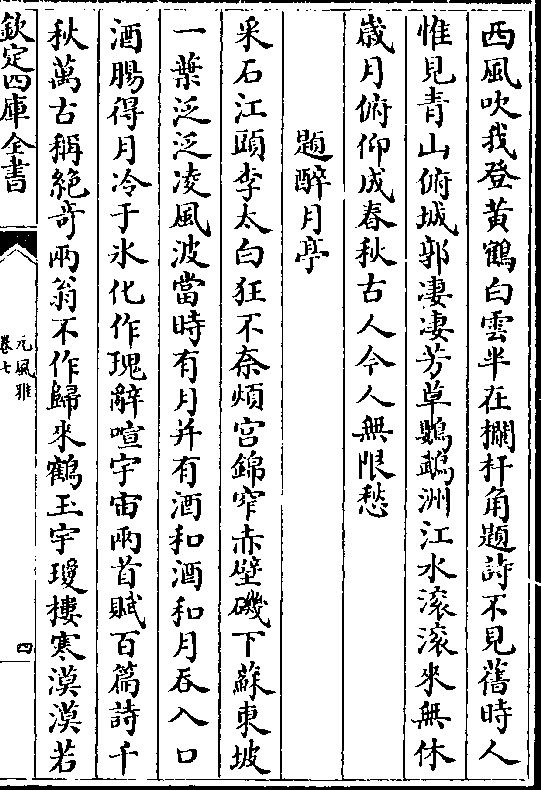 西風吹我登黄鶴白雲半在攔杆角題詩不見舊時人
惟見青山俯城郭凄凄芳草鸚鵡洲江水滚滚來無休
歳月俯仰成春秋古人今人無限愁
題醉月亭
采石江頭李太白狂不奈煩宫錦窄赤壁磯下蘇東坡
一葉泛泛凌風波當時有月并有酒和酒和月吞入口
酒腸得月冷于氷化作瑰辭喧宇宙兩首賦百篇詩千
秋萬古稱絶竒兩翁不作歸來鶴玉宇瓊樓寒漠漠若
欽定四庫全書
元風雅
卷七
四